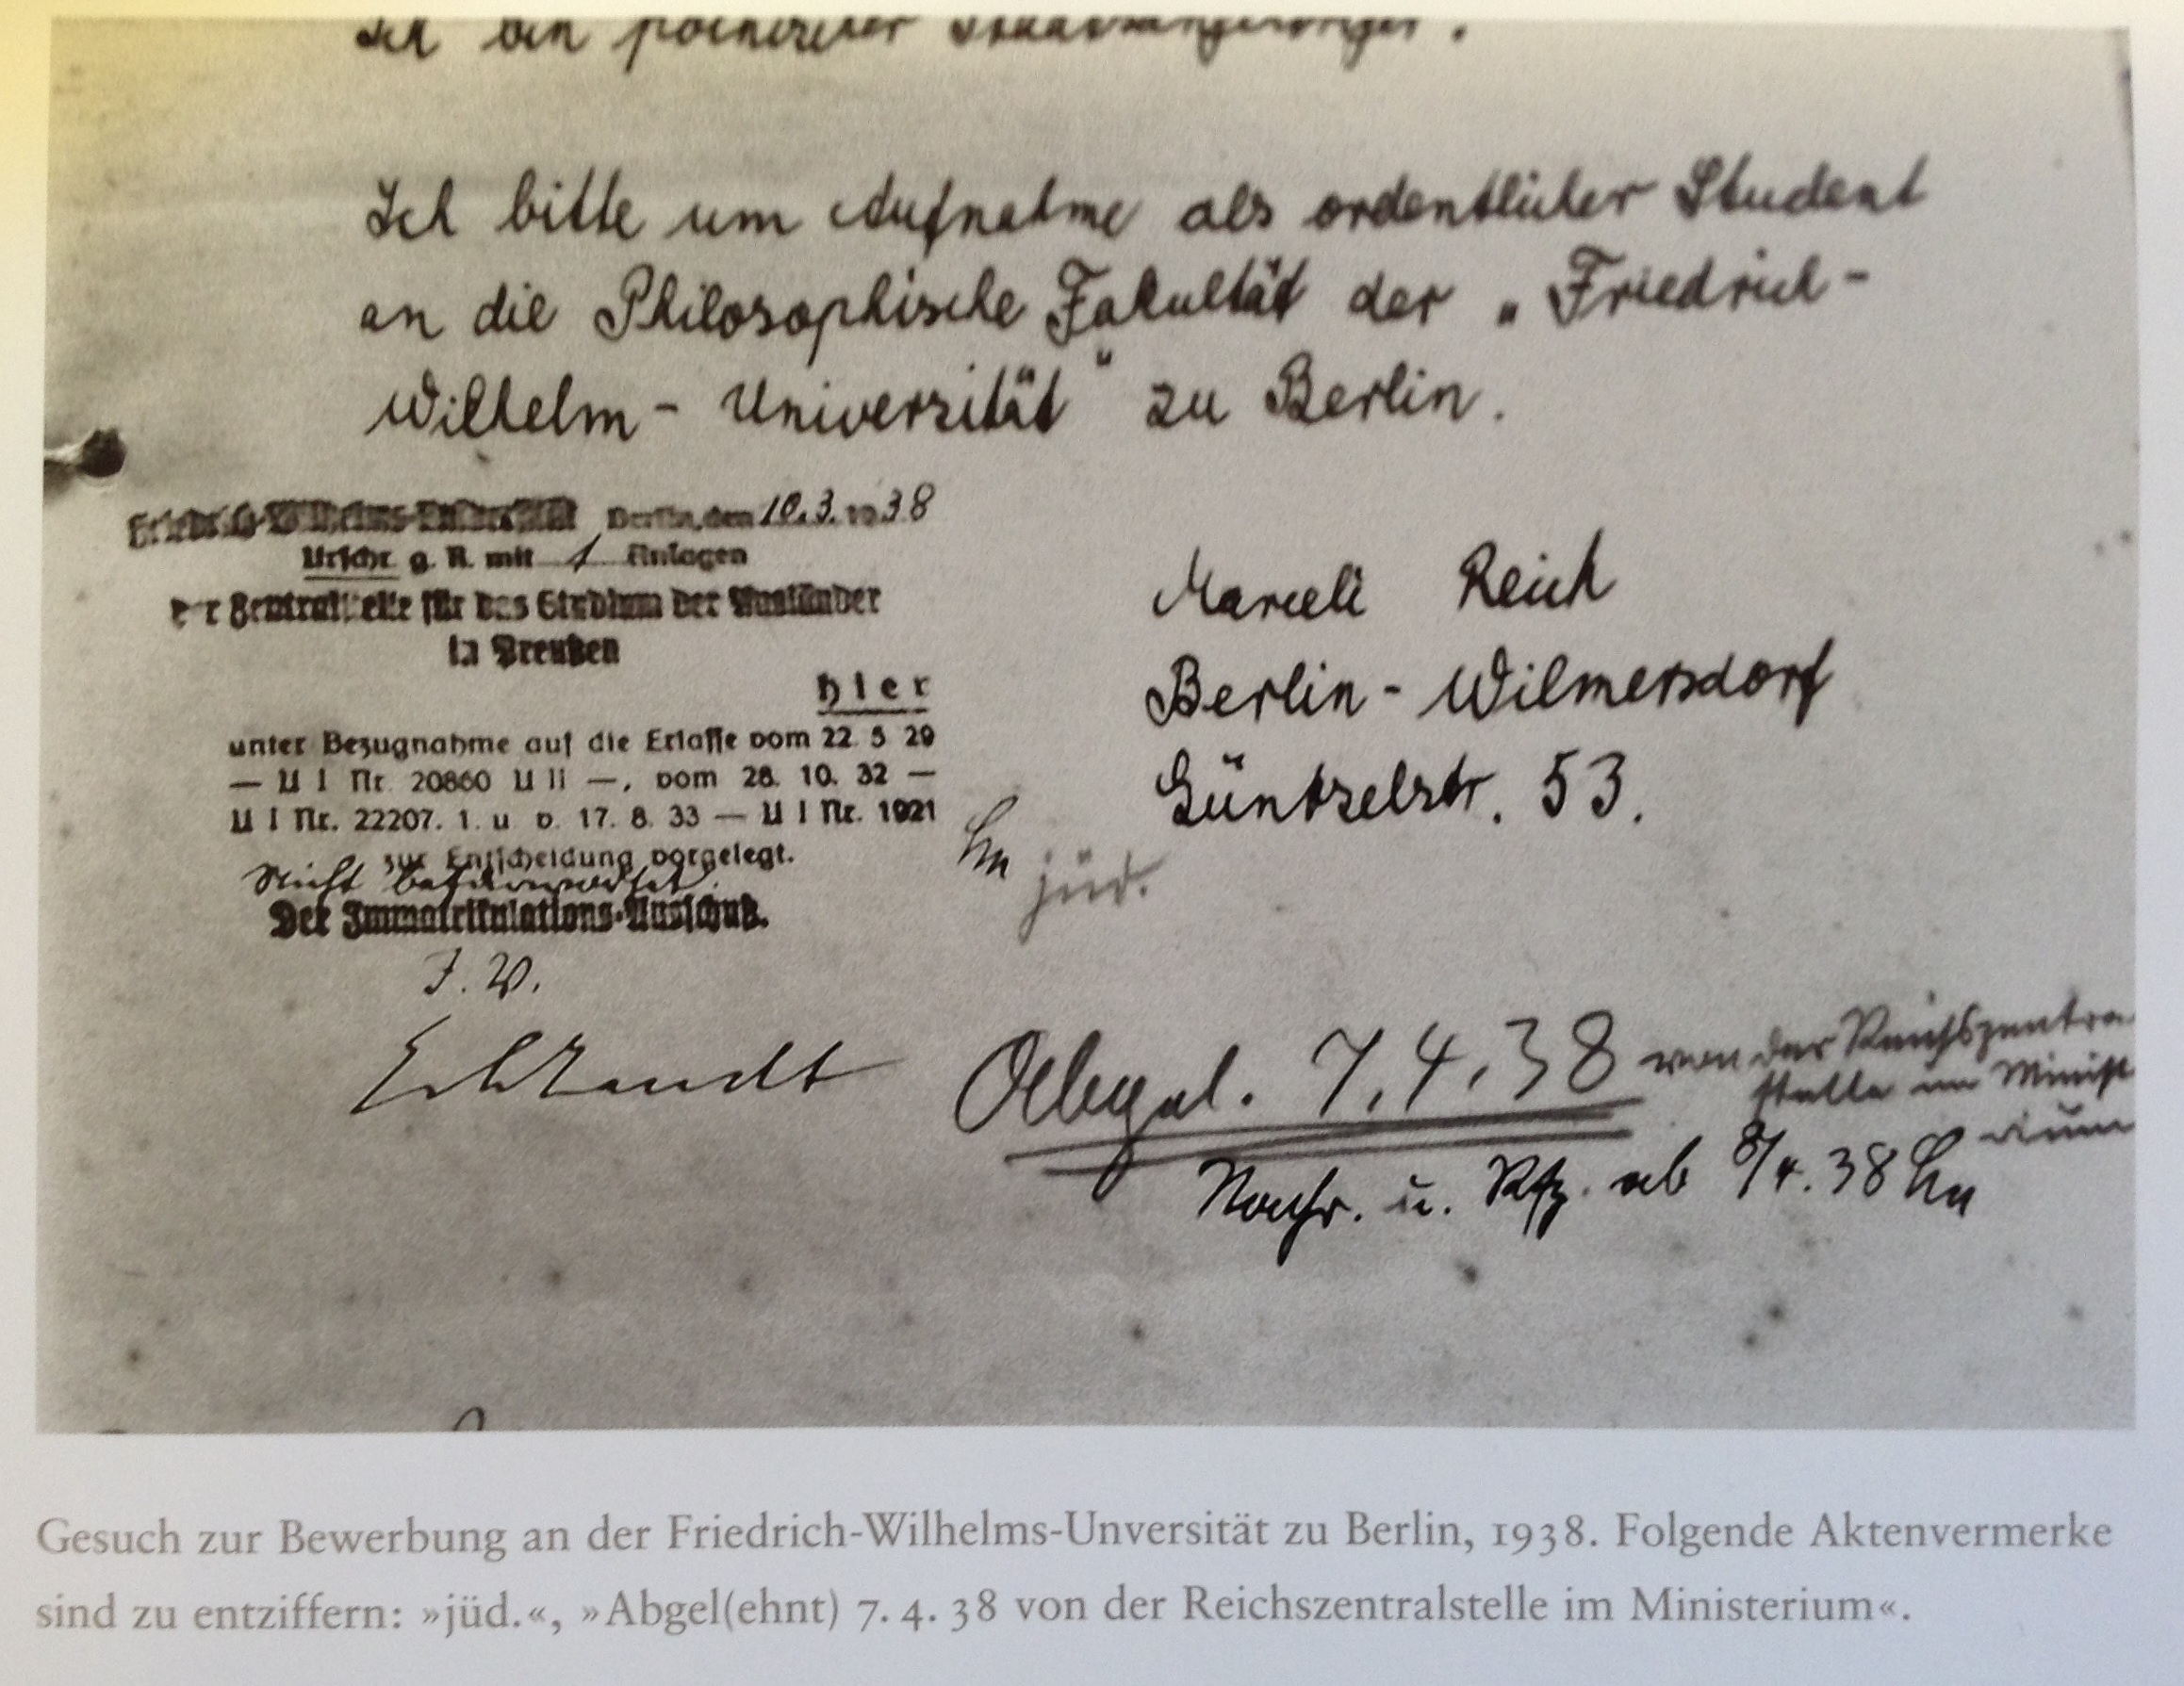 Ich bin polnischer Staatsangehöriger.
Ich bitte um Aufnahme als ordentlicher Student
an die Philosophische Fakultät der „Friedrich-
Wilhelm-Universität" zu Berlin.
Friedrich-Wilhelms-Universität, Berlin, den 10.3.1938
Urschr. g. R. mit 1 Anlagen
der Zentralstelle für das Studium der Ausländer
in Preußen
hier
unter Bezugnahme auf die Erlasse vom 22. 5 29
— U I Nr. 20860 U II —, vom 28. 10. 32 —
U I Nr. 22207. 1. u. v. 17. 8. 33 — U I Nr. 1921
zur Entscheidung vorgelegt.
Nicht befürwortet.
Der Immatrikulations-Ausschuß.
I. V.
Marceli Reich
Berlin-Wilmersdorf
Güntzelstr. 53.
jüd.
Abgel. 7.4.38 von der Reichszentra
stelle im Minist
rium
u. ab 8/4.38
Gesuch zur Bewerbung an der Friedrich-Wilhelms-Unversität zu Berlin, 1938. Folgende Aktenvermerke
sind zu entziffern: »jüd.«, »Abgel(ehnt) 7. 4. 38 von der Reichszentralstelle im Ministerium«.